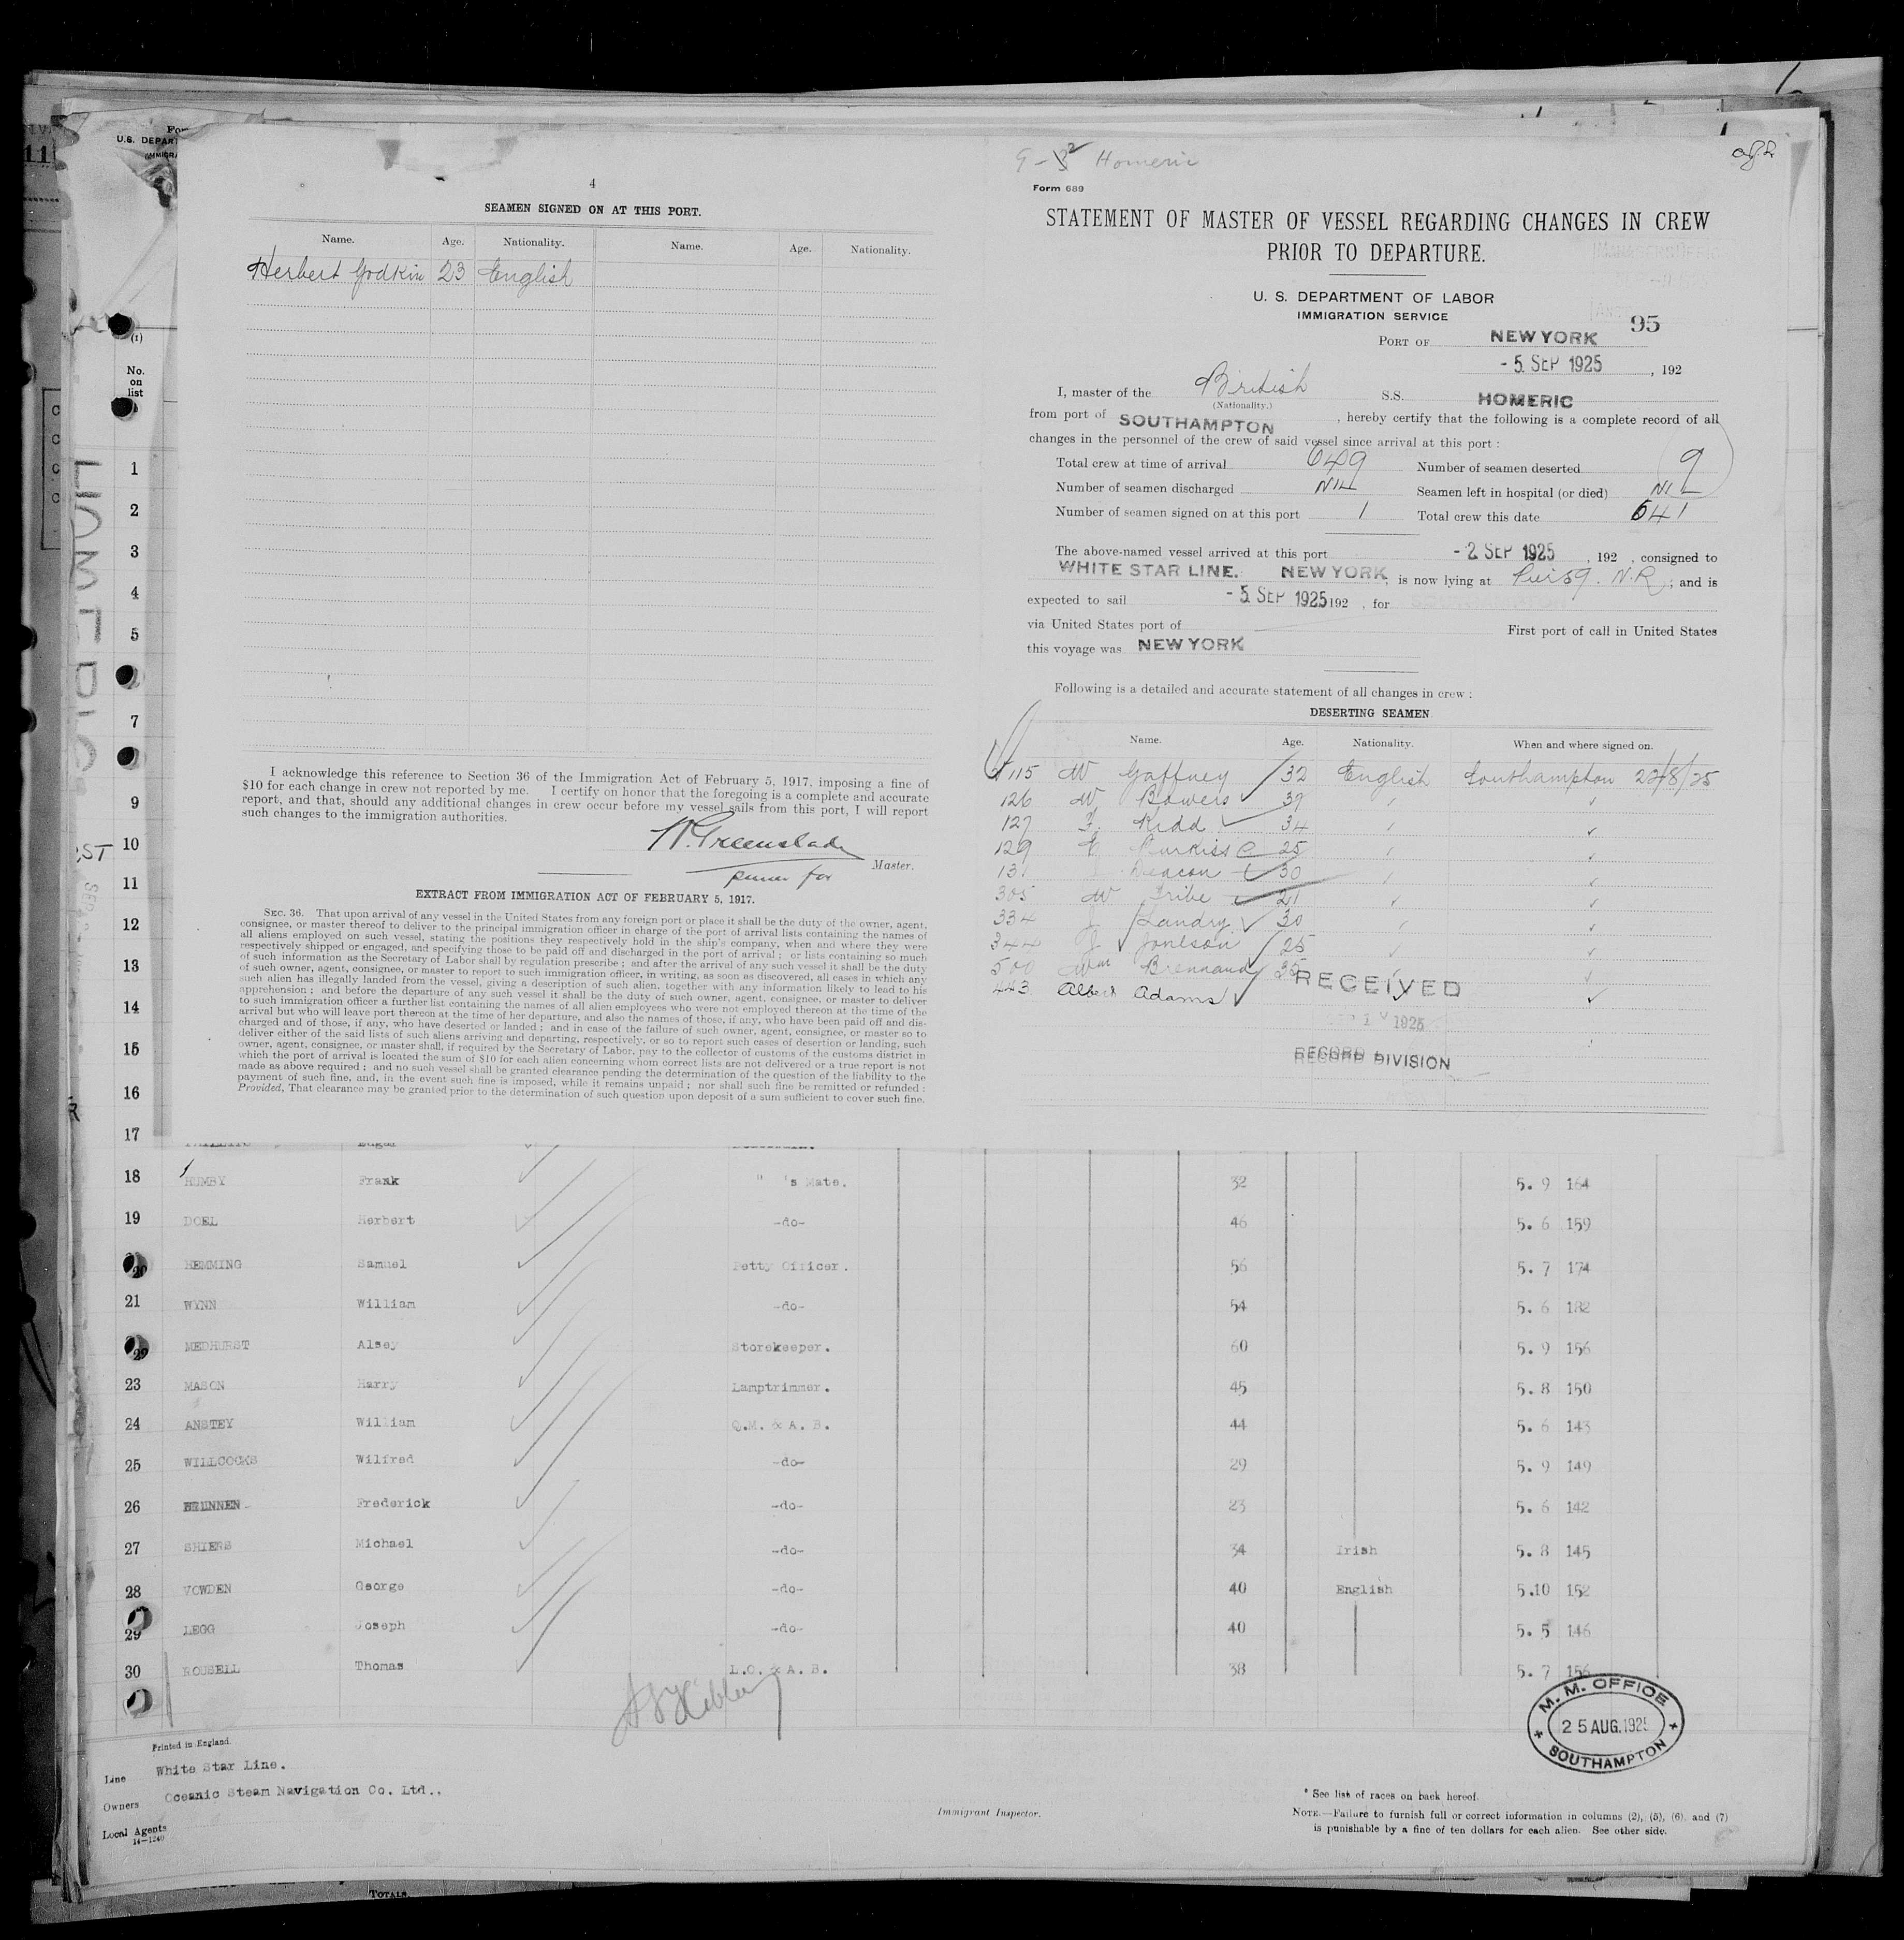 4
SEAMEN SIGNED ON AT THIS PORT.
Name. Age. Nationality. Name. Age. Nationality.
Herbert Godkin 23 English
I acknowledge this reference to Section 36 of the Immigration Act of February 5, 1917, imposing a fine of
$10 for each change in crew not reported by me. I certify on honor that the foregoing is a complete and accurate
report, and that, should any additional changes in crew occur before my vessel sails from this port, I will report
such changes to the immigration authorities.
Greenslade
Master.
purser for
EXTRACT FROM IMMIGRATION ACT OF FEBRUARY 5, 1917.
SEC. 36. That upon arrival of any vessel in the United States from any foreign port or place it shall be the duty of the owner, agent,
consignee, or master thereof to deliver to the principal immigration officer in charge of the port of arrival lists containing the names of
all aliens employed on such vessel, stating the positions they respectively hold in the ship's company, when and where they were
respectively shipped or engaged, and specifying those to be paid off and discharged in the port of arrival; or lists containing so much
of such information as the Secretary of Labor shall by regulation prescribe; and after the arrival of any such vessel it shall be the duty
of such owner, agent, consignee, or master to report to such immigration officer, in writing, as soon as discovered, all cases in which any
such alien has illegally landed from the vessel, giving a description of such alien, together with any information likely to lead to his
apprehension; and before the departure of any such vessel it shall be the duty of such owner, agent, consignee, or master to deliver
to such immigration officer a further list containing the names of all alien employees who were not employed thereon at the time of the
arrival but who will leave port thereon at the time of her departure, and also the names of those, if any, who have been paid off and dis-
charged and of those, if any, who have deserted or landed; and in case of the failure of such owner, agent, consignee, or master so to
deliver either of the said lists of such aliens arriving and departing, respectively, or so to report such cases of desertion or landing, such
owner, agent, consignee, or master shall, if required by the Secretary of Labor, pay to the collector of customs of the customs district in
which the port of arrival is located the sum of $10 for each alien concerning whom correct lists are not delivered or a true report is not
made as above required; and no such vessel shall be granted clearance pending the determination of the question of the liability to the
payment of such fine, and, in the event such fine is imposed, while it remains unpaid; nor shall such fine be remitted or refunded:
Provided, That clearance may be granted prior to the determination of such question upon deposit of a sum sufficient to cover such fine.
Homeric
Form 689
STATEMENT OF MASTER OF VESSEL REGARDING CHANGES IN CREW
PRIOR TO DEPARTURE.
U. S. DEPARTMENT OF LABOR
IMMIGRATION SERVICE
95
PORT OF NEW YORK
- 5 SEP 1925, 192
I, master of the British S.S. HOMERIC
(Nationality.)
from port of SOUTHAMPTON, hereby certify that the following is a complete record of all
changes in the personnel of the crew of said vessel since arrival at this port:
Total crew at time of arrival 649 Number of seamen deserted 9
Number of seamen discharged NIL Seamen left in hospital (or died) NIL
Number of seamen signed on at this port 1 Total crew this date 641
The above-named vessel arrived at this port - 2 SEP 1925, 192 , consigned to
WHITE STAR LINE. NEW YORK, is now lying at Pier 59. N.R.; and is
expected to sail - 5 SEP 1925 192 , for SOUTHAMPTON
via United States port of First port of call in United States
this voyage was NEW YORK
Following is a detailed and accurate statement of all changes in crew:
DESERTING SEAMEN
Name. Age. Nationality. When and where signed on.
115 W Gaffney 32 English Southampton 22/8/25
126 W Bowers 39
127 F. Kidd 34
129 Purkiss 25
131 Deacon 30
305 W Tribe 21
334 J Landry 30
344 J Jonlson 25
500 Wm Brennand 35
443 Albert Adams
RECEIVED
1925
RECORD DIVISION
U.S. DEPART
No.
on
list
1
2
3
4
5
7
9
10
11
12
13
14
15
16
17
18 HUMBY Frank " 's Mate. 32 5. 9 164
19 DOEL Herbert -do- 46 5. 6 159
20 HEMMING Samuel Petty Officer. 56 5. 7 174
21 WYNN William -do- 54 5. 6 182
22 MEDHURST Alsey Storekeeper. 60 5. 9 156
23 MASON Harry Lamptrimmer. 45 5. 8 150
24 ANSTEY William Q.M. & A. B. 44 5. 6 143
25 WILLCOCKS Wilfred -do- 29 5. 9 149
26 BRUNNEN Frederick -do- 23 5. 6 142
27 SHIERS Michael -do- 34 Irish 5. 8 145
28 VOWDEN George -do- 40 English 5.10 152
29 LEGG Joseph -do- 40 5. 5 146
30 ROUSELL Thomas L.O. & A. B. 38 5. 7 156
M. M. OFFICE
25 AUG. 1925
SOUTHAMPTON
Printed in England.
Line White Star Line.
Owners Oceanic Steam Navigation Co. Ltd..
Local Agents
14—1240
Immigrant Inspector.
* See list of races on back hereof.
NOTE.—Failure to furnish full or correct information in columns (2), (5), (6), and (7)
is punishable by a fine of ten dollars for each alien. See other side.
TOTALS